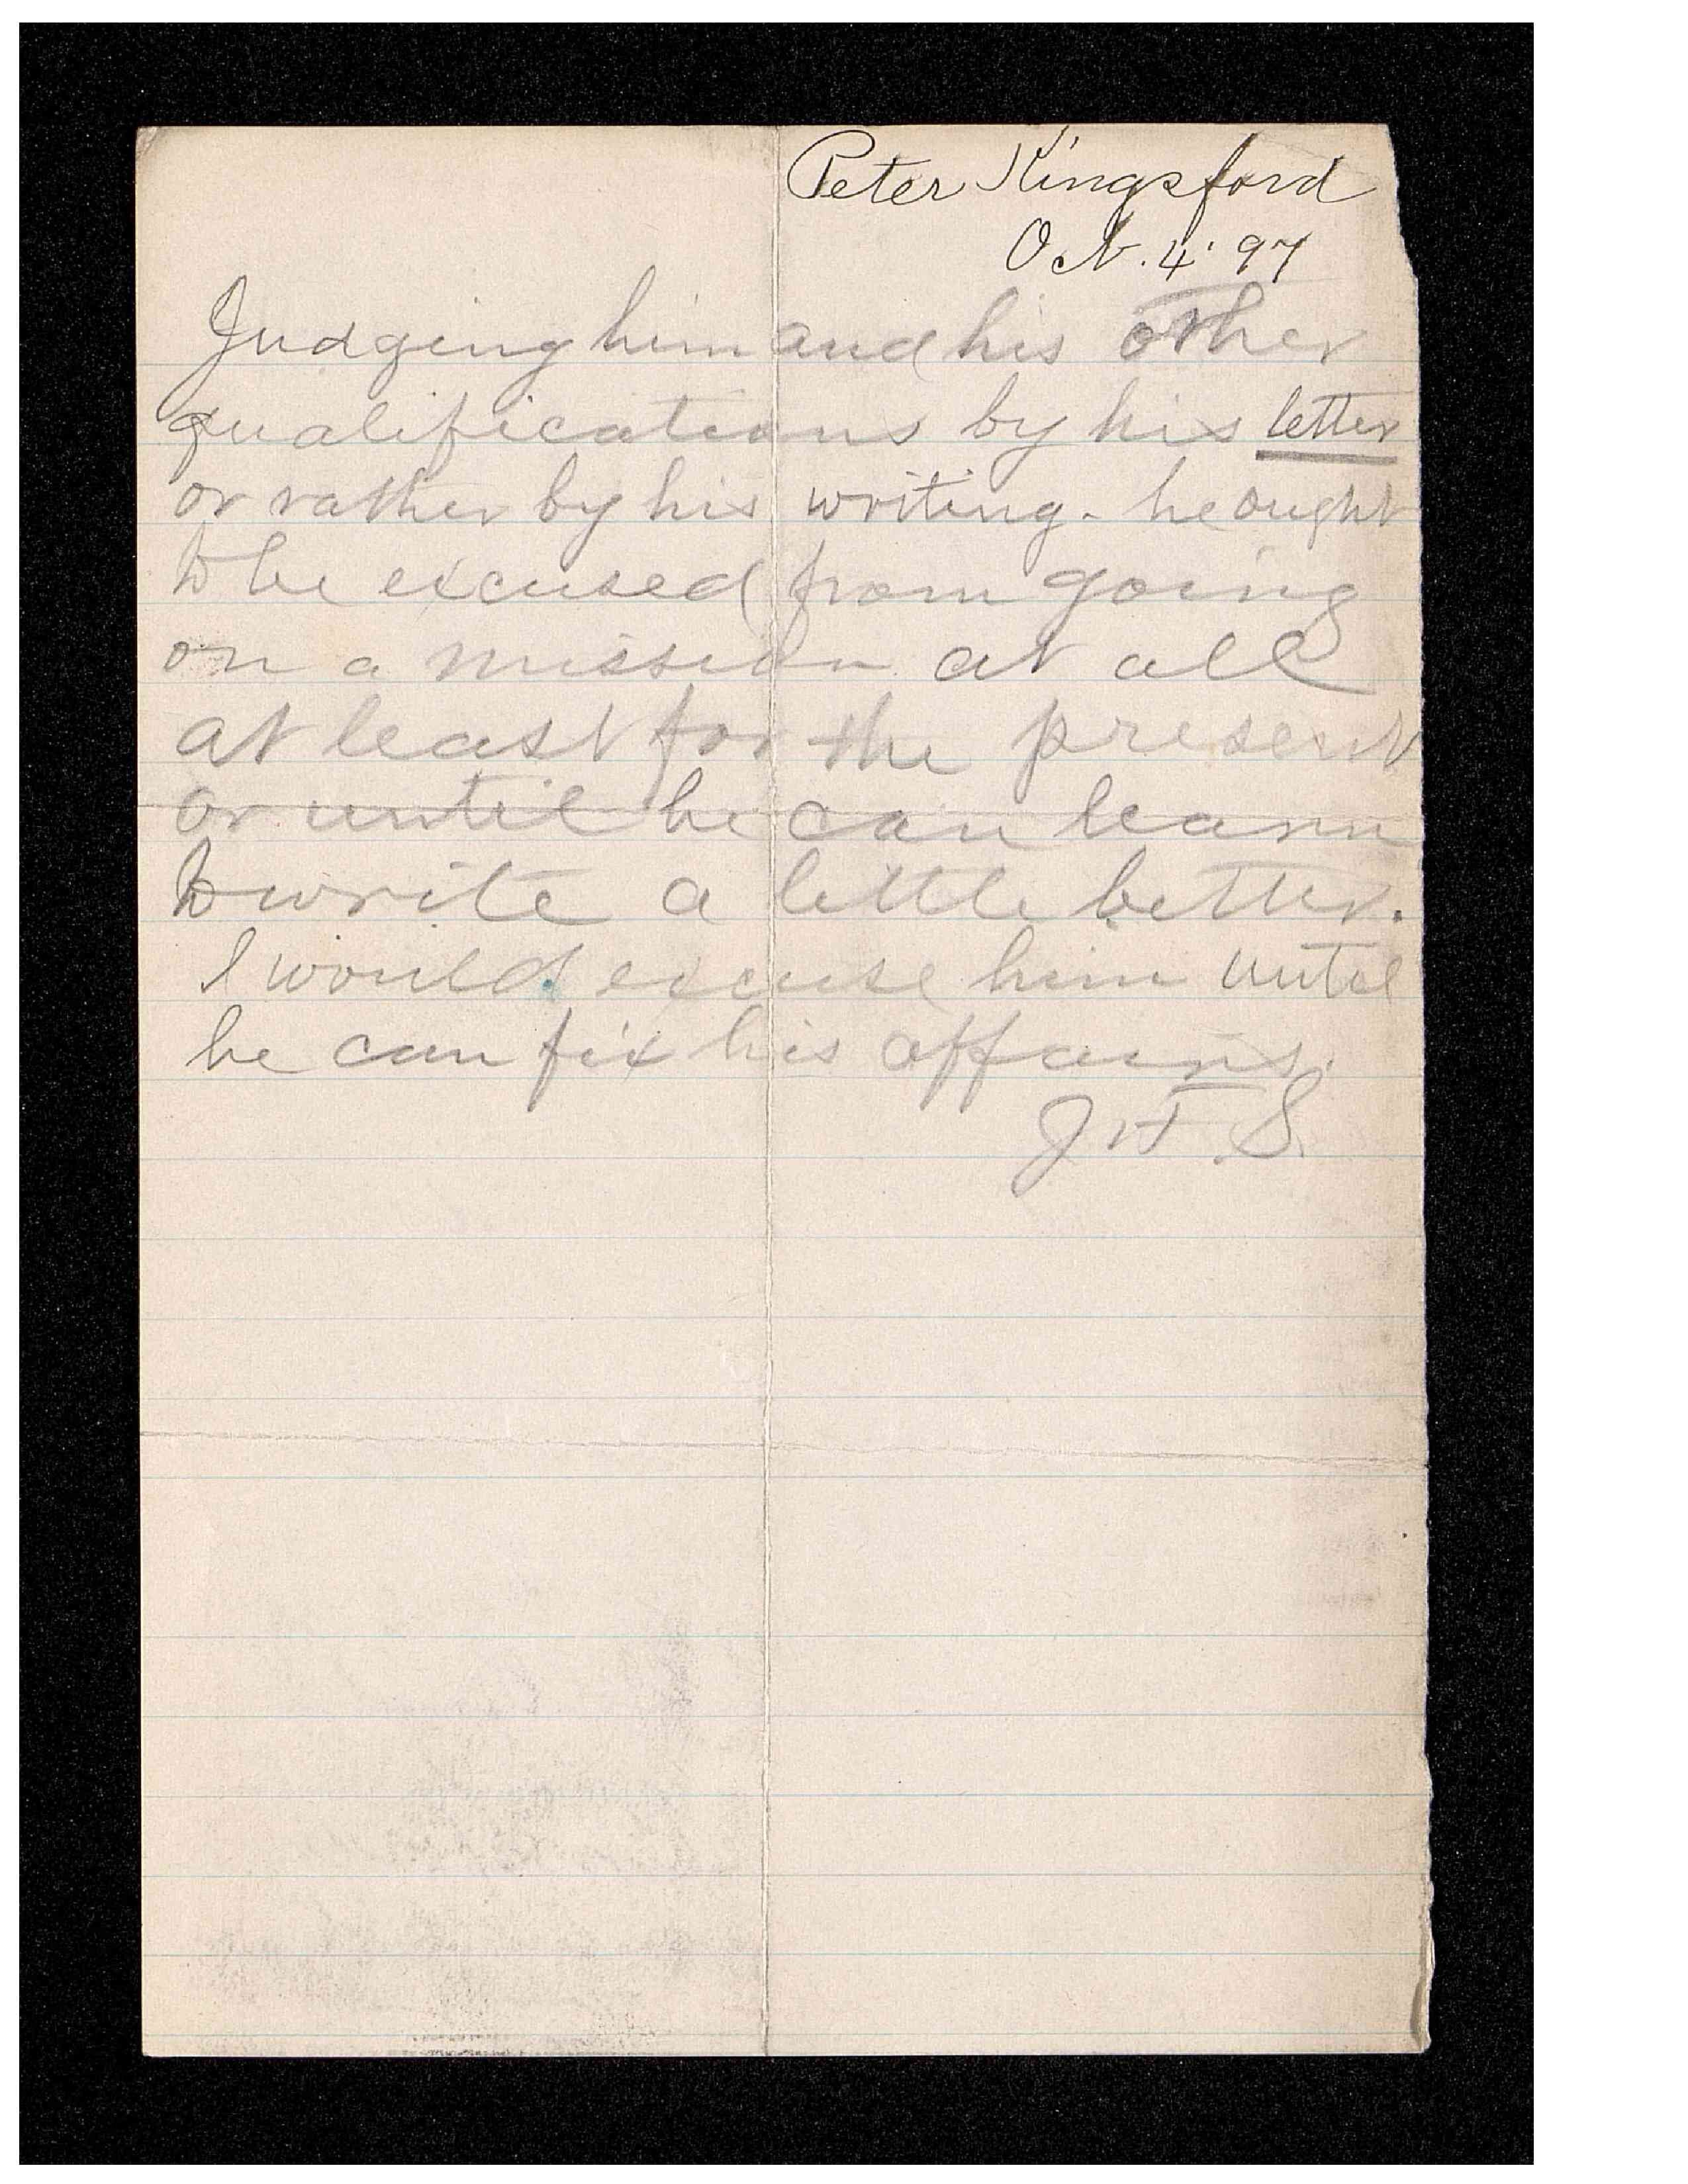 Peter Kingsford
Oct. 4. 97
Judging him and his other
qualifications by his letter
or rather by his writing - he ought
to be excused from going
on a mission at all
at least for the present
or until he can learn
to write a little better.
I would excuse him until
he can fix his affairs.
J. F. S.